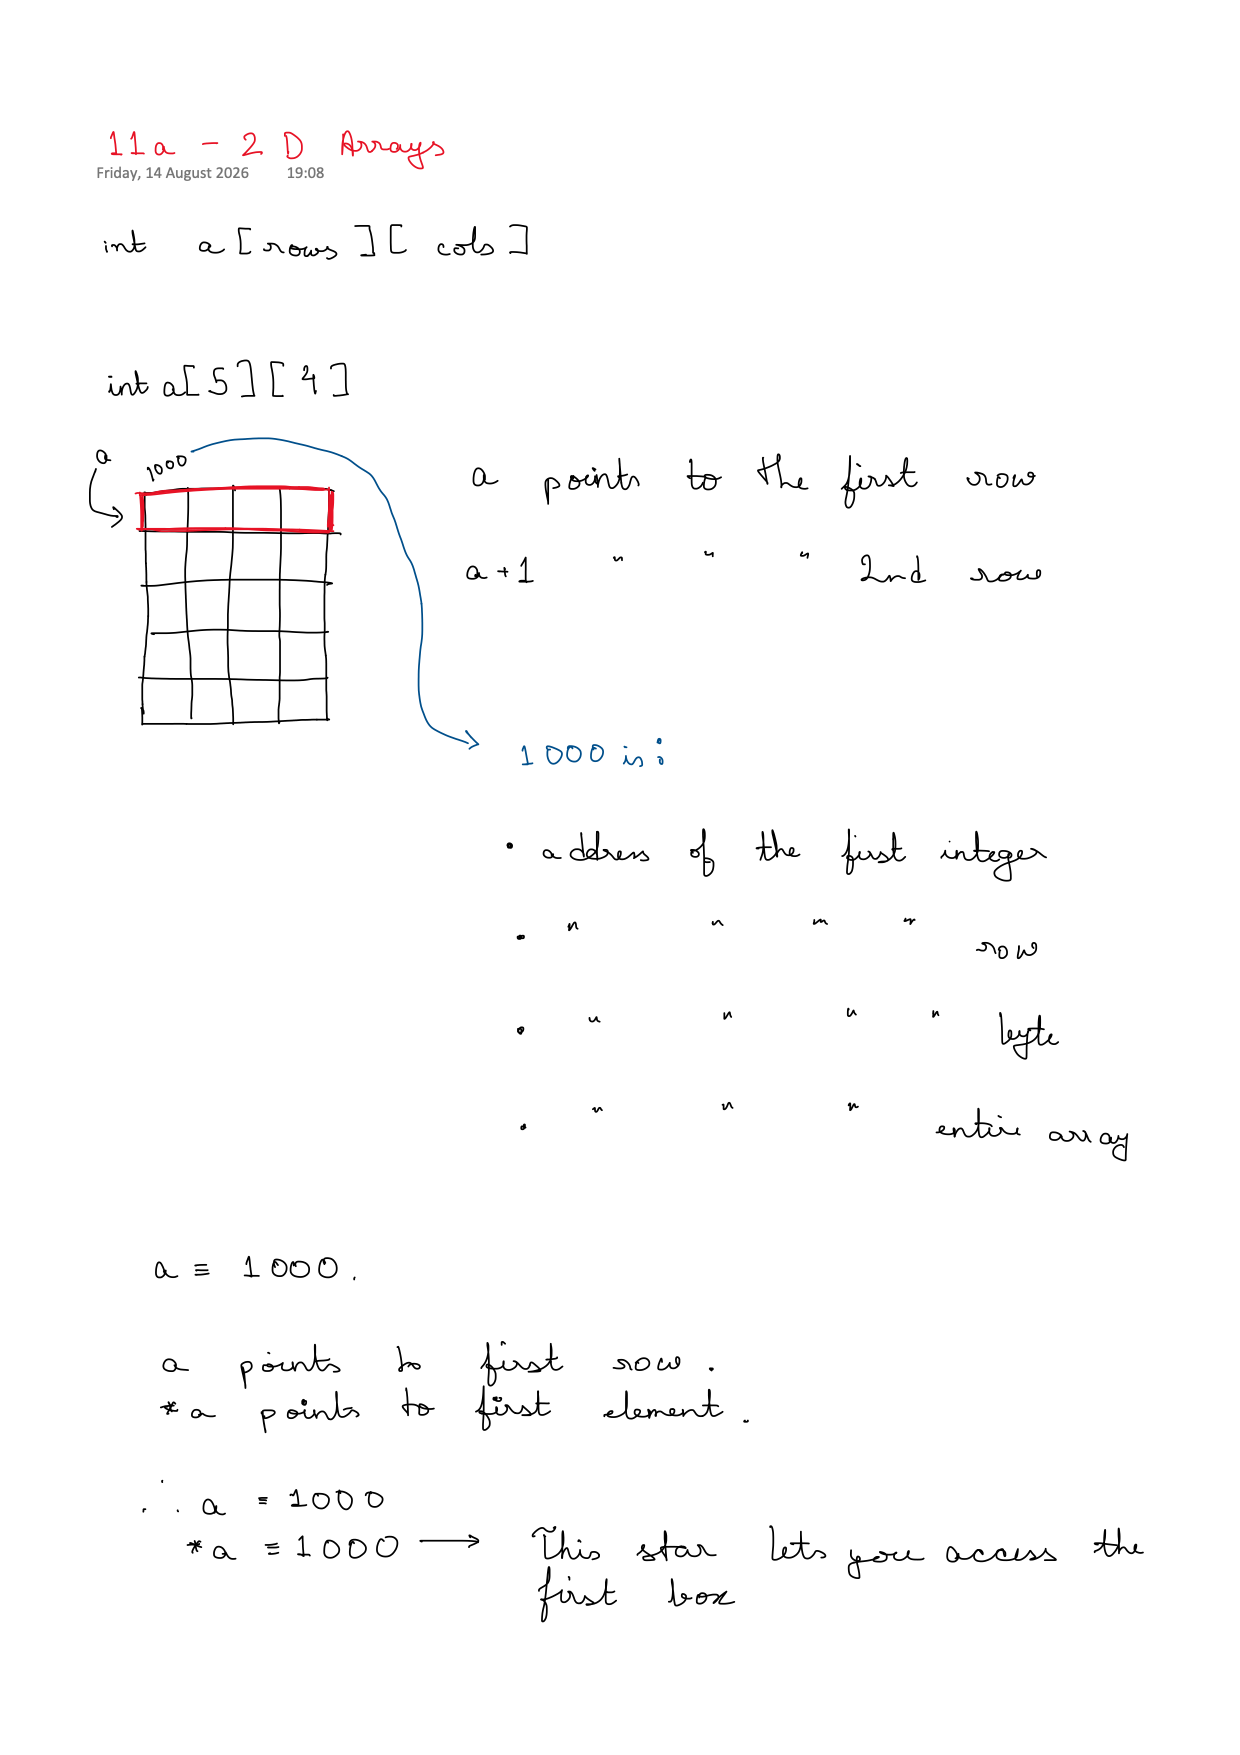 11a - 2 D Arrays
Friday, 14 August 2026 19:08
int a [ rows ] [ cols ]
int a[ 5 ] [ 4 ]
a 1000
a points to the first row
a + 1 " " " 2nd row
1000 is :
• address of the first integer
• " " " " row
• " " " " byte
• " " " entire array
a ≡ 1000.
a points to first row.
*a points to first element.
∴ a ≡ 1000
*a ≡ 1000 → This star lets you access the
first box